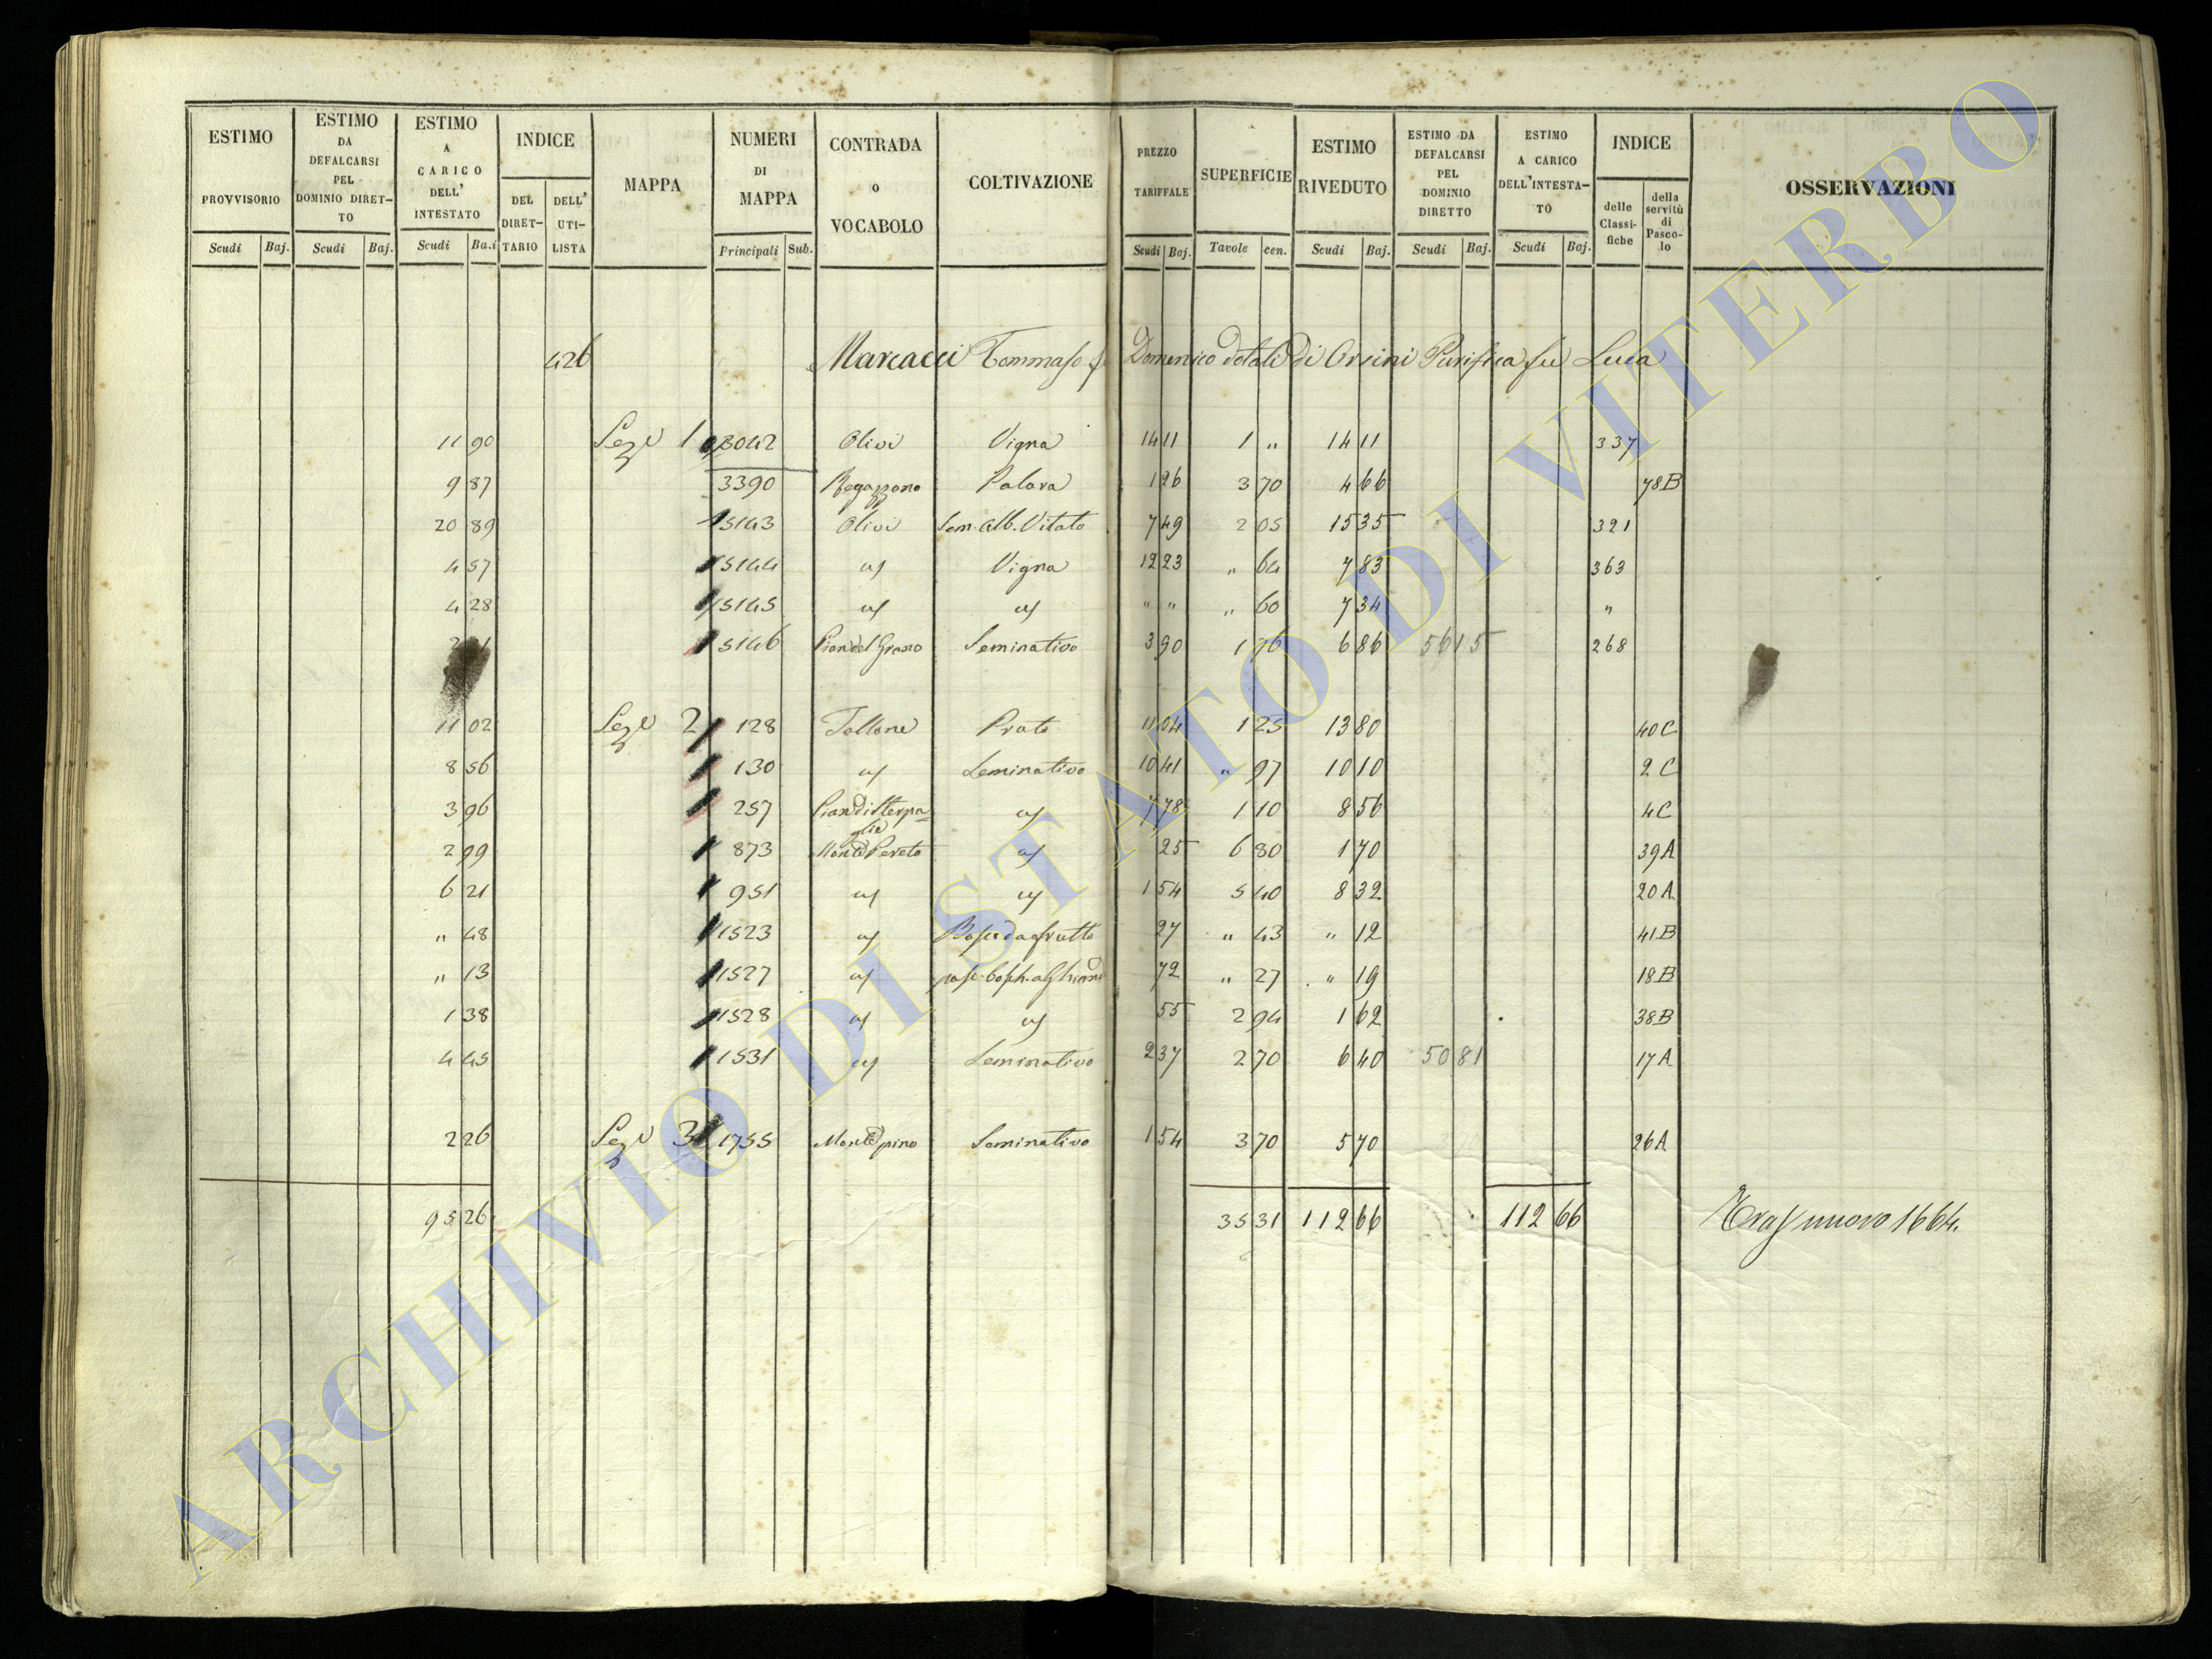 ESTIMO PROVVISORIO Scudi Baj.
ESTIMO DA DEFALCARSI PEL DOMINIO DIRET-TO Scudi Baj.
ESTIMO A CARICO DELL' INTESTATO Scudi Ba.i
INDICE DEL DIRET-TARIO DELL' UTI-LISTA
MAPPA
NUMERI DI MAPPA Principali Sub.
CONTRADA O VOCABOLO
COLTIVAZIONE
PREZZO TARIFFALE Scudi Baj.
SUPERFICIE Tavole cen.
ESTIMO RIVEDUTO Scudi Baj.
ESTIMO DA DEFALCARSI PEL DOMINIO DIRETTO Scudi Baj.
ESTIMO A CARICO DELL'INTESTA-TO Scudi Baj.
INDICE delle Classi-fiche della servitù di Pasco-lo
OSSERVAZIONI
426 Marcacci Tommaso f Domenico dotali di Orsini Purifica fu Luca
11 90 Sez.e 1 3042 Olivi Vigna 14 11 1 " 14 11 337
9 87 3390 Regazzano Palara 1 26 3 70 4 66 78B
20 89 5143 Olivi Sem. Alb. Vitato 7 49 2 05 15 35 321
4 57 5144 Vigna 12 23 " 64 7 83 363
4 28 5145 " " " 60 7 34 "
5146 Pian del Grano Seminativo 3 90 1 76 6 86 56 15 268
11 02 Sez.e 2 128 Tollone Prato 11 04 1 25 13 80 40C
8 56 130 Seminativo 10 41 " 97 10 10 2C
3 96 257 Pian di Sterpa=
glie 7 78 1 10 8 56 4C
2 99 873 Monte Pereto 25 6 80 1 70 39A
6 21 951 1 54 5 40 8 32 20A
" 48 1523 Bosco da frutto 27 " 43 " 12 41B
" 13 1527 pasc. bosch. a Ghiand 72 " 27 " 19 18B
1 38 1528 55 2 94 1 62 38B
4 45 1531 Seminativo 2 37 2 70 6 40 50 81 17A
2 26 Sez.e 3 1755 Monte pino Seminativo 1 54 3 70 5 70 26A
95 26 35 31 112 66 112 66 Trasf nuovo 1664.
ARCHIVIO DI STATO DI VITERBO